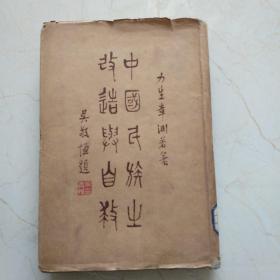 力生韋淵若著
中國民族之
改造與自救
吳敬恆題